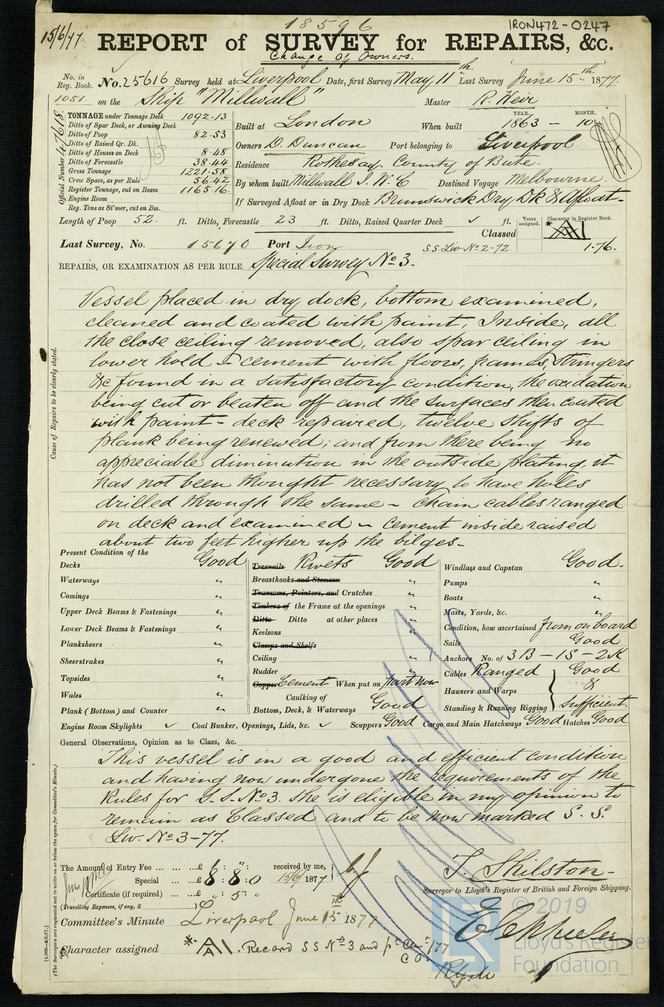 18596
IRON472-0247
15/6/77
REPORT of SURVEY for REPAIRS, &c.
Change of Owners.
No. in Reg. Book. No. 25616 Survey held at Liverpool Date, first Survey May 11th Last Survey June 15th 1877
1051 on the Ship "Millwall" Master R. Weir
Official Number 47618
TONNAGE under Tonnage Deck 1092.13
Ditto of Spar Deck, or Awning Deck
Ditto of Poop 82.53
Ditto of Raised Qr. Dk.
Ditto of Houses on Deck 8.48
Ditto of Forecastle 38.44
Gross Tonnage 1221.58
Crew Space, as per Rule 56.42
Register Tonnage, cut on Beam 1165.16
Engine Room
Reg. Tons as Stmer, cut on Bm.
Built at London When built YEAR. 1863 – MONTH. 10
Owners D. Duncan Port belonging to Liverpool
Residence Rothesay, County of Bute.
By whom built Millwall I.W.C Destined Voyage Melbourne
If Surveyed Afloat or in Dry Dock Brunswick Dry Dk & Afloat
Length of Poop 52. ft. Ditto, Forecastle 23 ft. Ditto, Raised Quarter Deck ✓ ft.
Years assigned. Character in Register Book.
Classed A1
Last Survey, No. 15670 Port Iron S S Liv. No 2-72. 1.76.
REPAIRS, OR EXAMINATION AS PER RULE Special Survey No 3.
Vessel placed in dry dock, bottom examined,
cleaned and coated with paint, Inside, all
the close ceiling removed, also spar ceiling in
lower hold & cement with floors, frames, stringers
&c found in a satisfactory condition, the oxidation
being cut or beaten off and the surfaces then coated
with paint – deck repaired, twelve shifts of
plank being renewed; and from there being no
appreciable diminution in the outside plating, it
has not been thought necessary to have holes
drilled through the same – chain cables ranged
on deck and examined – cement inside raised
about two feet higher up the bilges.
Cause of Repairs to be clearly stated.
Present Condition of the
Decks Good
Waterways "
Comings "
Upper Deck Beams & Fastenings "
Lower Deck Beams & Fastenings "
Planksheers "
Sheerstrakes "
Topsides "
Wales "
Plank (Bottom) and Counter "
Treenails Rivets Good
Breasthooks and Stemson "
Transoms, Pointers, and Crutches "
Timbers of the Frame at the openings "
Ditto Ditto at other places "
Keelsons "
Clamps and Shelfs
Ceiling "
Rudder "
Copper Cement When put on part now
Caulking of
Bottom, Deck, & Waterways Good
Windlass and Capstan Good.
Pumps "
Boats "
Masts, Yards, &c. "
Condition, how ascertained from on board
Sails Good
Anchors No. of 3B – 1S – 2K
Cables Ranged Good
Hawsers and Warps &
Standing & Running Rigging Sufficient
Engine Room Skylights ✓ Coal Bunker, Openings, Lids, &c. ✓ Scuppers Good Cargo and Main Hatchways Good Hatches Good
General Observations, Opinion as to Class, &c.
This vessel is in a good and efficient condition
and having now undergone the requirements of the
Rules for S.S. No 3. she is eligible in my opinion to
remain as Classed and to be now marked S. S.
Liv. No 3–77.
The Amount of Entry Fee ... £ : " : received by me,
Special ... £ 8 : 8 : 0 15/6/1877
Certificate (if required) ... £ " : 5 : "
(Travelling Expenses, if any, £ )
T. Shilston
Surveyor to Lloyd's Register of British and Foreign Shipping.
Committee's Minute Liverpool June 15 1877
Character assigned A1. Record SS No 3 and
© 2019
Lloyd's Register
Foundation